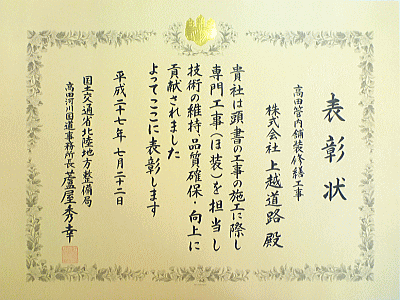 表彰状
高田管内舗装修繕工事
株式会社 上越道路 殿
貴社は頭書の工事の施工に際し
専門工事（ほ装）を担当し
技術の維持、品質確保・向上に
貢献されました
よってここに表彰します
平成二十七年 七月二十二日
国土交通省北陸地方整備局
高田河川国道事務所長 蘆屋秀幸